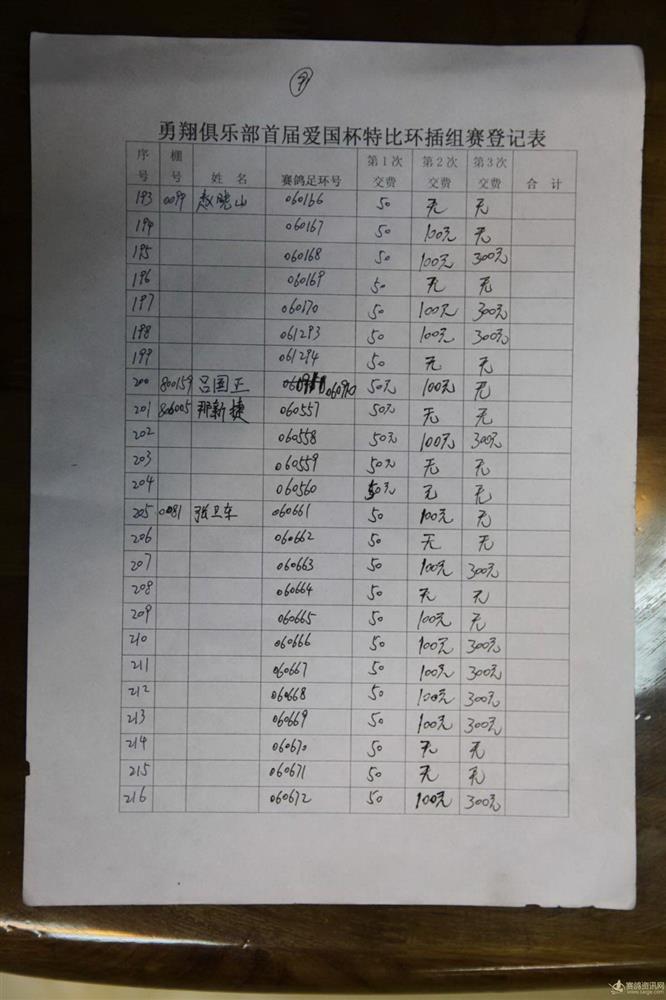 9
勇翔俱乐部首届爱国杯特比环插组赛登记表
序号 棚号 姓 名 赛鸽足环号 第1次交费 第2次交费 第3次交费 合 计
193 0099 赵晓山 060166 50 无 无
194 060167 50 100元 无
195 060168 50 100元 300元
196 060169 50 无 无
197 060170 50 100元 300元
198 061293 50 100元 300元
199 061294 50 无 无
200 800159 吕国正 060910 50元 100元 无
201 806005 那新捷 060557 50元 无 无
202 060558 50元 100元 300元
203 060559 50元 无 无
204 060560 50元 无 无
205 0081 张卫东 060661 50 100元 无
206 060662 50 无 无
207 060663 50 100元 300元
208 060664 50 无 无
209 060665 50 100元 无
210 060666 50 100元 300元
211 060667 50 100元 300元
212 060668 50 100元 300元
213 060669 50 100元 300元
214 060670 50 无 无
215 060671 50 无 无
216 060672 50 100元 300元
赛鸽资讯网